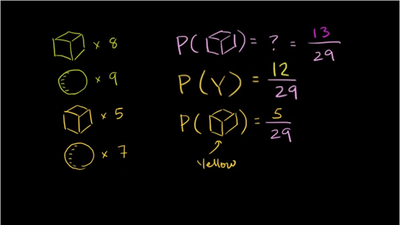 × 8
× 9
× 5
× 7
P( ) = ? = 13/29
P(Y) = 12/29
P( ) = 5/29
Yellow